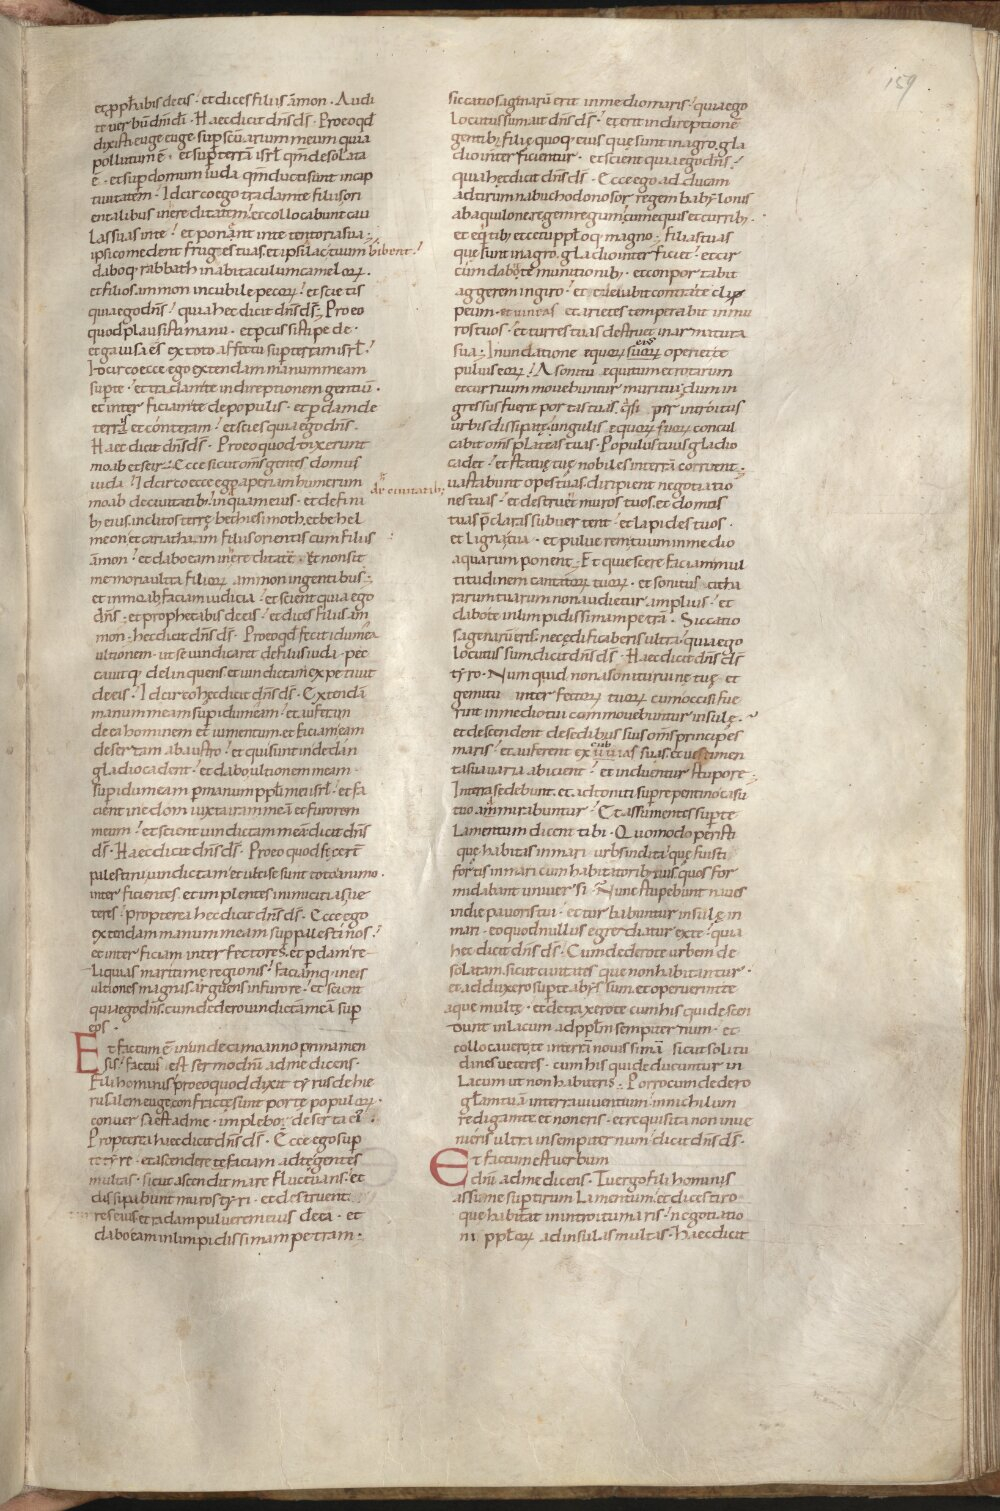 159
et pphabis de eis · et dices filiis āmon · Audi
te verbū dn̄i dī · Haec dicit dn̄s ds̄ · Pro eo qd̄
dixisti euge euge sup scm̄ arium meum quia
pollutum ē · et sup terrā isrl̄ qm̄ desolata
ē · et sup domum iuda qm̄ ducti sunt in cap
tivitatem · Idcirco ego tradam te filiis ori
entalibus in ereditatem · et collocabunt cau
las suas in te · et ponant in te tentoria sua ·
ipsi comedent fruges tuas · et ipsi lac tuum bibent ·
daboq· rabbath in abitaculum camelorꝝ ·
et filios ammon in cubile pecorꝝ · et scietis
quia ego dn̄s · quia haec dicit dn̄s ds̄ · Pro eo
quod plausisti manu · et pcussisti pede ·
et gavisa es ex toto affectu sup terram isrl̄ ·
Idcirco ecce ego extendam manum meam
sup te · et tradam te in direptionem gentiū ·
et interficiam te de populis · et pdam de
terris et conteram · et scies quia ego dn̄s ·
Haec dicit dn̄s ds̄ · Pro eo quod dixerunt
moab et seir · Ecce sicut om̄s gentes domus
iuda · Idcirco ecce ego aperiam humerum
moab de civitatib· inquam eius · et de fini
b; eius inclitos terrę bethiesimoth et behel
meon et cariathaim filiis orientis cum filiis
āmon · et dabo eam in ereditatē · Et non sit
memoria ultra filiorꝝ ammon in gentibus ·
et in moab faciam iudicia · et scient quia ego
dn̄s · et prophetabis de eis · et dices filiis am
mon · hec dicit dn̄s ds̄ · Pro eo qd̄ fecit idumea
ultionem · ut se vindicaret de filiis iuda · pec
cavitq· delinquens et vindictam expetivit
de eis · Idcirco hęc dicit dn̄s ds̄ · Extendā
manum meam sup idumeam · et auferam
de ea hominem et iumentum et faciam eam
desertam ab austro · et qui sunt in dedan
gladio cadent · et dabo ultionem meam
sup idumeam p manum ppl̄i mei isrl̄ · et fa
cient in edom iuxta iram meā et furorem
meum · et scient vindictam meā dicit dn̄s
ds̄ · Haec dicit dn̄s ds̄ · Pro eo quod fecer̄t
palestini vindictam et ulti se sunt toto animo ·
interficientes et implentes inimicitias ve
teres · propterea hec dicit dn̄s ds̄ · Ecce ego
extendam manum meam sup palestinos ·
et interficiam interfectores et pdam re
liquias maritime regionis · faciamq· in eis
ultiones magnas arguens in furore · et scient
quia ego dn̄s cum dedero vindictā meā sup
eos ·
Et factum ē in undecimo anno prima men
sis · factus est sermo dn̄i ad me dicens ·
Fili hominis pro eo quod dixit tyrus de hie
rusalem euge confracte sunt porte populorꝝ ·
conversa est ad me · implebor deserta ē ·
Propterea haec dicit dn̄s ds̄ · Ecce ego sup
te tyre · et ascendere te faciam ad te gentes
multas · sicut ascendit mare fluctuans · et
dissipabunt muros tyri · et destruent
turres eius et radam pulverem eius de ea · et
dabo eam in limpidissimam petram ·
de civitatib;
siccatio sagenarū erit in medio maris · quia ego
locutus sum ait dn̄s ds̄ · et erit in direptionē
gentib; filię quoq· eius quę sunt in agro gla
dio interficientur · et scient quia ego dn̄s ·
quia hęc dicit dn̄s ds̄ · Ecce ego adducam
ad tirum nabuchodonosor regem babylonis
ab aquilone regem regum cum equis et currib; ·
et eq̄tib; et cetu ppl̄oq· magno · filias tuas
quę sunt in agro gladio interficiet · et cir
cūmdabo te munitionib; · et conportabit
aggerem in giro · et elevabit contra te clip
peum · et vineas et arietes temperabit in mu
ros tuos · et turres tuas destruet in armatura
sua · Inundatione equorꝝ suorꝝ operiet te
pulvis eorꝝ · A sonitu equitum et rotarum
et curruum movebuntur muri tui dum in
gressus fuerit portas tuas q̄si per introitus
urbis dissipatę ungulis equorꝝ suorꝝ concul
cabit om̄s plateas tuas · Populus tuus gladio
cadet · et statuę tuę nobiles in terrā corruent ·
vastabunt opes tuas diripient negotiatio
nes tuas · et destruent muros tuos et domos
tuas p̄claras subvertent · et lapides tuos ·
et ligna tua · et pulverem tuum in medio
aquarum ponent · Et quiescere faciam mul
titudinem canticorꝝ tuorꝝ · et sonitus citha
rarum tuarum non audietur amplius · et
dabo te in limpidissimam petrā · Siccatio
sagenarū eris nec ędificaberis ultra · quia ego
locutus sum dicit dn̄s ds̄ · Haec dicit dn̄s ds̄
tyro · Numquid non a sonitu ruinę tuę et
gemitu interfectorꝝ tuorꝝ cum occisi fue
rint in medio tui commovebuntur insulę ·
et descendent de sedibus suis om̄s principes
maris · et auferent exuvias suas · et vestimen
ta sua varia abicient · et induentur stupore ·
In terra sedebunt · et adtoniti sup repentino casu
tuo ammirabuntur · Et assumentes sup te
lamentum dicent tibi · Quomodo peristi
que habitas in mari urbs inclita que fuisti
fortis in mari cum habitatorib; tuis quos for
midabant universi · Nunc stupebunt naves
in die pavoris tui · et turbabuntur insulę in
mari · eo quod nullus egrediatur ex te · quia
hec dicit dn̄s ds̄ · Cum dedero te urbem de
solatam sicut civitates que non habitantur ·
et adduxero sup te abyssum et operuerint te
aque multę · et detraxero te cum his qui descen
dunt in lacum ad ppl̄m sempiternum · et
collocavero te in terrā novissimā sicut solitu
dines veteres · cum his qui deducuntur in
lacum ut non habiteris · Porro cum dedero
gl̄am tuā in terra viventium · in nichilum
redigam te et non eris · et requisita non inve
nieris ultra in sempiternum dicit dn̄s ds̄ ·
Et factum est verbum
dn̄i ad me dicens · Tu ergo fili hominis
assume sup tirum lamentum · et dices tiro
que habitat in introitu maris · negotiatio
ni ppl̄orꝝ ad insulas multas · Haec dicit